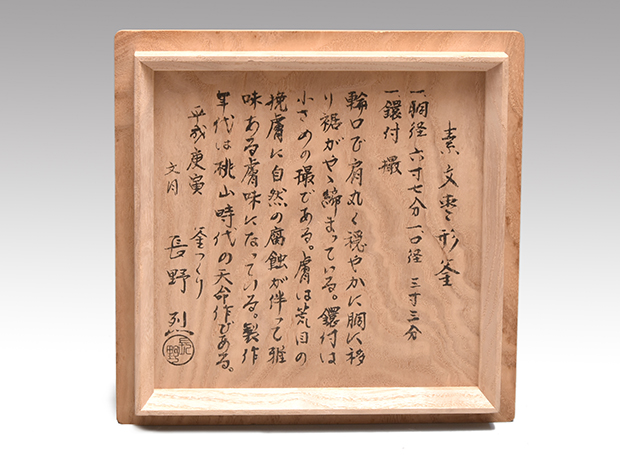 素文棗形釜
一、胴径 六寸七分 一、口径 三寸三分
一、鐶付 撮
輪口で肩丸く穏やかに胴に移
り裾がやゝ締まっている。鐶付は
小さめの撮である。膚は荒目の
挽膚に自然の腐蝕が伴って雅
味ある膚味になっている。製作
年代は桃山時代の天命作である。
平成庚寅 釜つくり
文月 長野 烈
長野